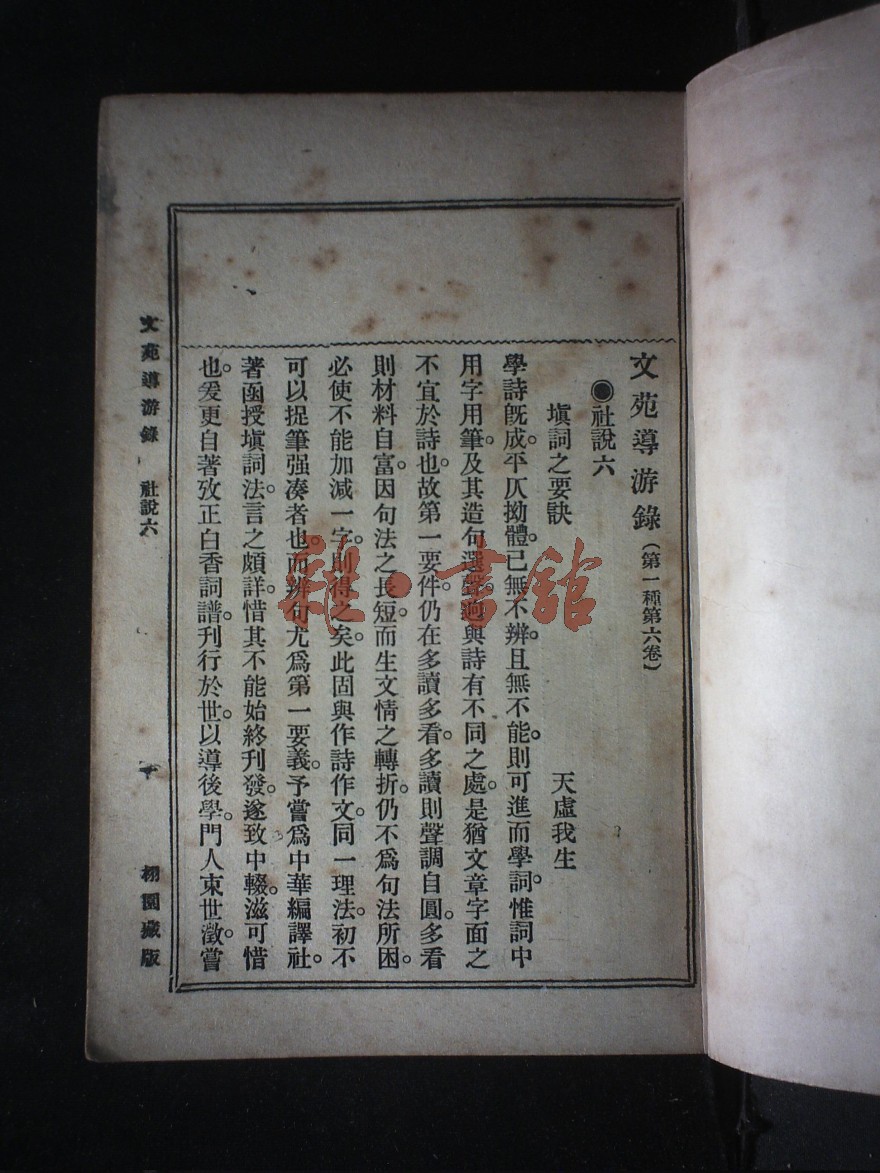 文苑導游錄（第一種第六卷）
◉社說六
塡詞之要訣　天虛我生
學詩旣成。平仄拗體。已無不辨。且無不能。則可進而學詞。惟詞中
用字用筆。及其造句選聲。迥與詩有不同之處。是猶文章字面之
不宜於詩也。故第一要件。仍在多讀多看。多讀則聲調自圓。多看
則材料自富。因句法之長短。而生文情之轉折。仍不爲句法所困。
必使不能加減一字。則得之矣。此固與作詩作文。同一理法。初不
可以捉筆强凑者也。而辨句尤爲第一要義。予嘗爲中華編譯社。
著函授塡詞法。言之頗詳。惜其不能始終刊發。遂致中輟。滋可惜
也。爰更自著攷正白香詞譜。刊行於世。以導後學。門人東世澂。嘗
文苑導游錄　社說六　栩園藏版
雜·書館